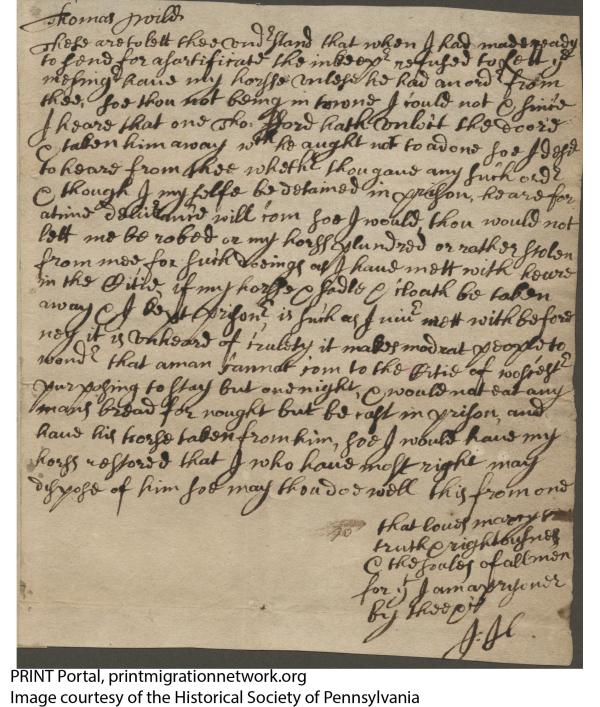 Thomas wild
These are to lett thee undrstand that when I had made ready
to send for a sartificate the inkeepr refused to lett ye
mesinger have my horsse unlese he had an ordr from
thee, soe thou not being in towne I could not & since
I heare that one Tho: Ford hath unlott the doore
& taken him away wch he aught not to a done soe I desire
to heare from thee whethr thou gave any such ordr
& though I my selfe be detained in prison, heare for
a time delivrance will com soe I would, thou would not
lett me be robed or my horss plundred or rather stolen
from mee for such doeings as I have mett with heare
in the Citie, if my horsse & sadle & cloath be taken
away & I kept prisonr is such as I nivr mett with before
ney it is unheard of cruelty it makes modrat people to
wondr that a man cannot com to the Citie of wostestr
purposing to stay but one night, & would not eat any
mans bread for nought but be cast in prison, and
have his horse taken from him, soe I would have my
horss restored that I who have most right may
dispose of him soe may thou doe well this from one
that loves marcy
truth & rightousnes
& the soules of all men
for yt I am a prisoner
by thee
J: Jl
PRINT Portal, printmigrationnetwork.org
Image courtesy of the Historical Society of Pennsylvania